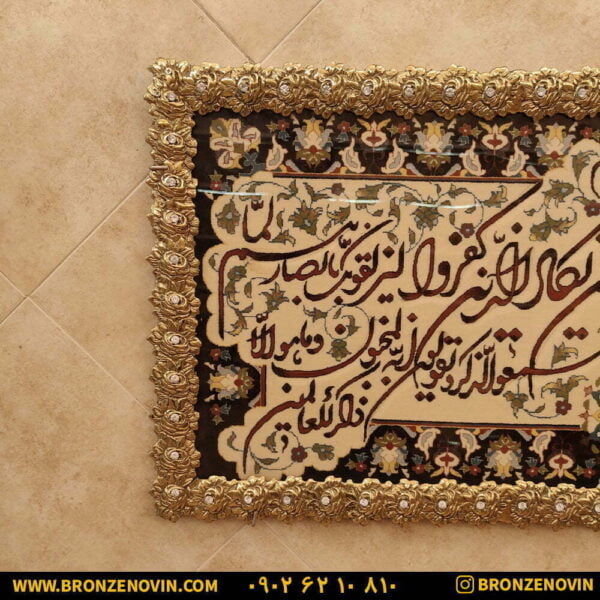 یکاد الذین کفروا لیزلقونک بابصارهم لما
سمعوا الذکر و یقولون انه لمجنون و ما هو الا
ذکر للعالمین
WWW.BRONZENOVIN.COM ۰۹۰۲ ۶۲ ۱۰ ۸۱۰ BRONZENOVIN